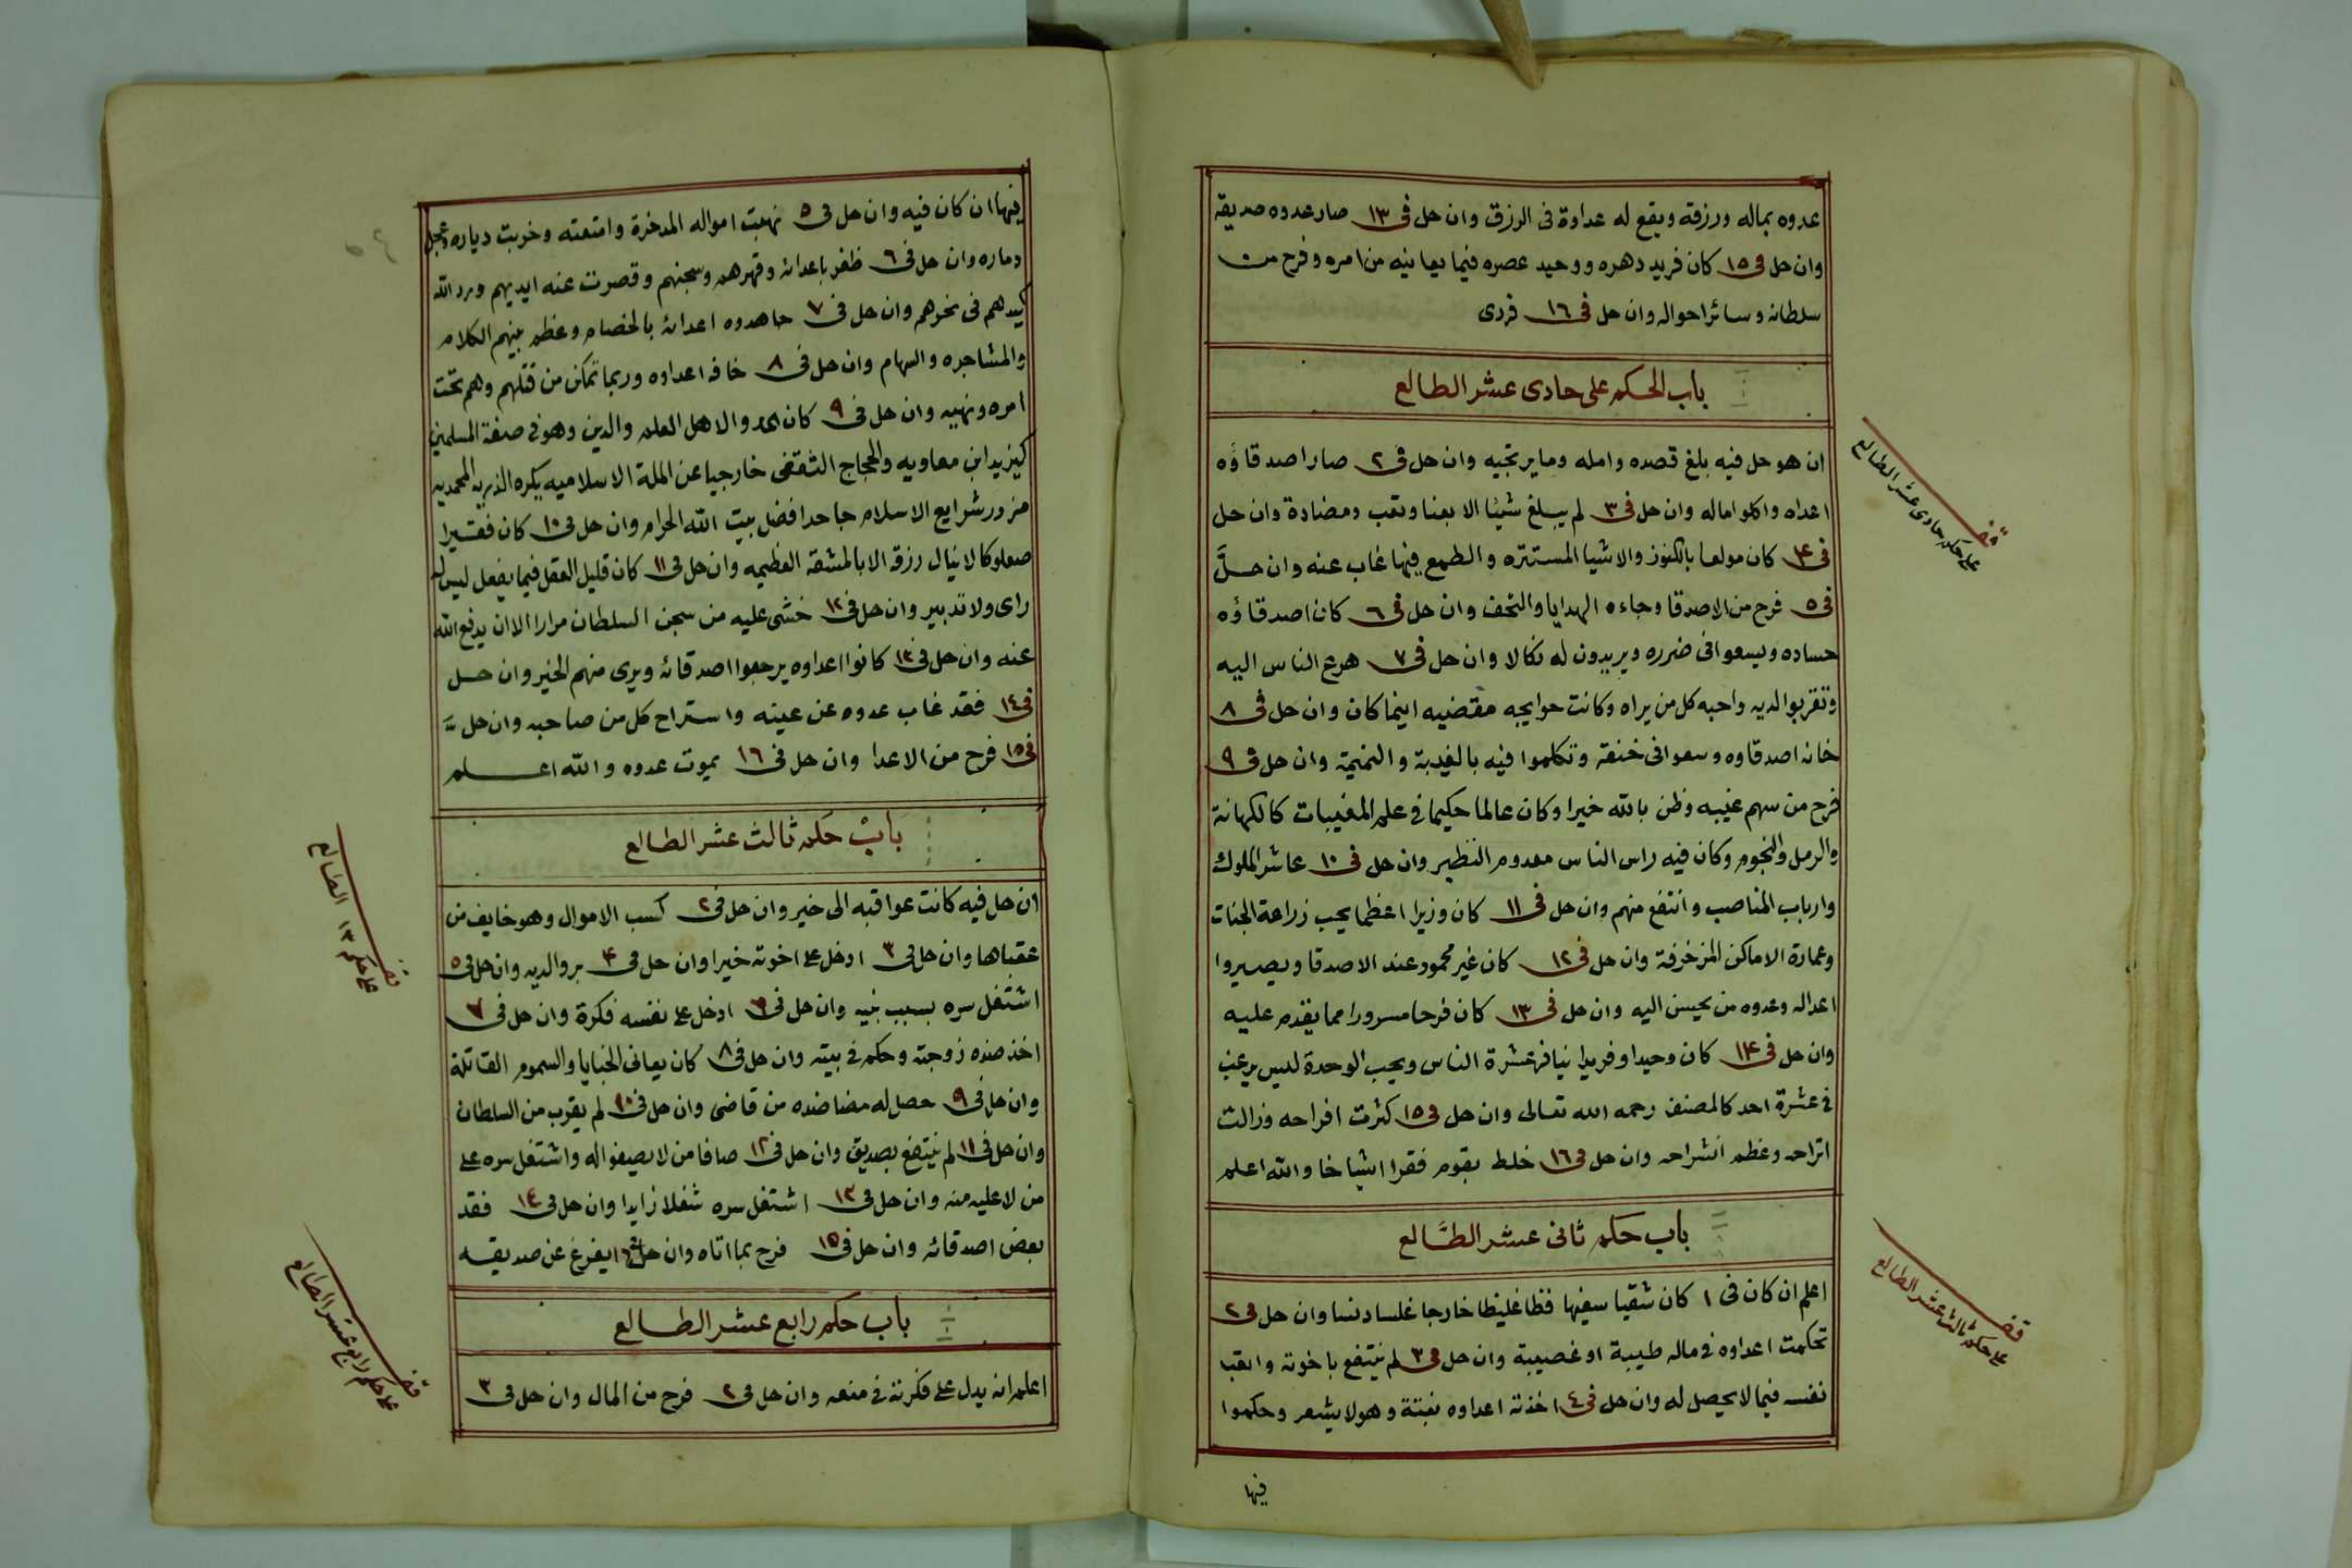 عدوه بماله ورزقه ويقع له عداوة فى الرزق وان حل فى ١٣ صار عدوه صديقه
وان حل فى ١٥ كان فريد دهره ووحيد عصره فيما يعانيه من امره وفرح من
سلطانه وسائر احواله وان حل فى ١٦ فردى
باب الحكم على حادى عشر الطالع
ان هو حل فيه بلغ قصده وامله وما يرتجيه وان حل فى ٢ صار اصدقاؤه
اعداه واكلوا ماله وان حل فى ٣ لم يبلغ شيئا الا بعنا وتعب ومضادة وان حل
فى ۴ كان مولعا بالكنوز والاشيا المستتره والطمع فيها غاب عنه وان حلَّ
فى ٥ فرح من الاصدقا وجاءه الهدايا والتحف وان حل فى ٦ كان اصدقاؤه
حساده ويسعوا فى ضرره ويريدون له نكالا وان حل فى ٧ هرع الناس اليه
وتقربوا لديه واحبه كل من يراه وكانت حوايجه مقضيه اينما كان وان حل فى ٨
خانه اصدقاوه وسعوا فى خنقه وتكلموا فيه بالغيبة والنميمة وان حل فى ٩
فرح من سهم غيبه وظن بالله خيرا وكان عالما حكيما فى علم المغيبات كالكهانة
والرمل والنجوم وكان فيه راس الناس معدوم النظير وان حل فى ١٠ عاشر الملوك
وارباب المناصب وانتفع منهم وان حل فى ١١ كان وزيرا اعظما يحب زراعة الجنات
وعمارة الاماكن المزخرفة وان حل فى ١٢ كان غير محمود عند الاصدقا ويصيروا
اعداله وعدوه من يحسن اليه وان حل فى ١٣ كان فرحا مسرورا مما يقدم عليه
وان حل فى ١۴ كان وحيدا وفريدا ينافر عشرة الناس ويحب الوحدة ليس يرغب
فى عشرة احد كالمصنف رحمه الله تعالى وان حل فى ١٥ كثرت افراحه وزالت
اتراحه وعظم انشراحه وان حل فى ١٦ خلط بقوم فقرا اشياخا والله اعلم
باب حكم ثانى عشر الطَّالع
اعلم ان كان فى ١ كان شقيا سفيها فظا غليظا خارجا غلسا دنسا وان حل فى ٢
تحكمت اعداوه فى ماله طيبة او غصيبة وان حل فى ٣ لم ينتفع باخوته واتعب
نفسه فيما لا يحصل له وان حل فى ٤ اخذته اعداوه بغتة وهو لا يشعر وحكموا
فيها
قف
على حكم حادى عشر الطالع
قف
على حكم ثالث عشر الطالع
فيها ان كان فيه وان حل فى ٥ نهبت امواله المدخرة وامتعته وخربت دياره وعجل
دماره وان حل فى ٦ ظفر باعدائه وقهرهم وسجنهم وقصرت عنه ايديهم ورد الله
كيدهم فى نحرهم وان حل فى ٧ جاهدوه اعدائه بالخصام وعظم بينهم الكلام
والمشاجره والسهام وان حل فى ٨ خافه اعداوه وربما تمكن من قتلهم وهم تحت
امره ونهيه وان حل فى ٩ كان عدوالاهل العلم والدين وهو فى صفة المسلمين
كيزيد ابن معاويه والحجاج الثقفى خارجيا عن الملة الاسلاميه يكره الذريه المحمديه
مزور شرايع الاسلام جاحدا فضل بيت الله الحرام وان حل فى ١٠ كان فقيرا
صعلوكا لا ينال رزقه الا بالمشقة العظيمه وان حل فى ١١ كان قليل العقل فيما يفعل ليس له
راى ولا تدبير وان حل فى ١٢ خشى عليه من سجن السلطان مرارا الا ان يدفع الله
عنه وان حل فى ١٣ كانوا اعداوه يرجعوا اصدقائه ويرى منهم الخير وان حل
فى ١٤ فقد غاب عدوه عن عينه واستراح كل من صاحبه وان حلَّ
فى ١٥ فرح من الاعدا وان حل فى ١٦ يموت عدوه والله اعلم
باب حكم ثالث عشر الطالع
ان حل فيه كانت عواقبه الى خير وان حل فى ٢ كسب الاموال وهو خايف من
عقباها وان حل فى ٣ ادخل على اخوته خيرا وان حل فى ۴ بر والديه وان حل فى ٥
اشتغل سره بسبب بنيه وان حل فى ٦ ادخل على نفسه فكرة وان حل فى ٧
اخذ ضده زوجته وحكم فى بيته وان حل فى ٨ كان يعانى الخبايا والسموم القاتلة
وان حل فى ٩ حصل له مضاضده من قاضى وان حل فى ١٠ لم يقرب من السلطان
وان حل فى ١١ لم ينتفع بصديق وان حل فى ١٢ صافا من لا يصفوا له واشتغل سره على
من لا عليه منه وان حل فى ١٣ اشتغل سره شغلا زايدا وان حل فى ١٤ فقد
بعض اصدقائه وان حل فى ١٥ فرح بما اتاه وان حل فى ١٦ يفرغ عن صديقه
باب حكم رابع عشر الطالع
اعلم انه يدل على فكرته فى منعه وان حل فى ٢ فرح من المال وان حل فى ٣
قف
على حكم ١٣ الطالع
قف
على حكم رابع عشر الطالع